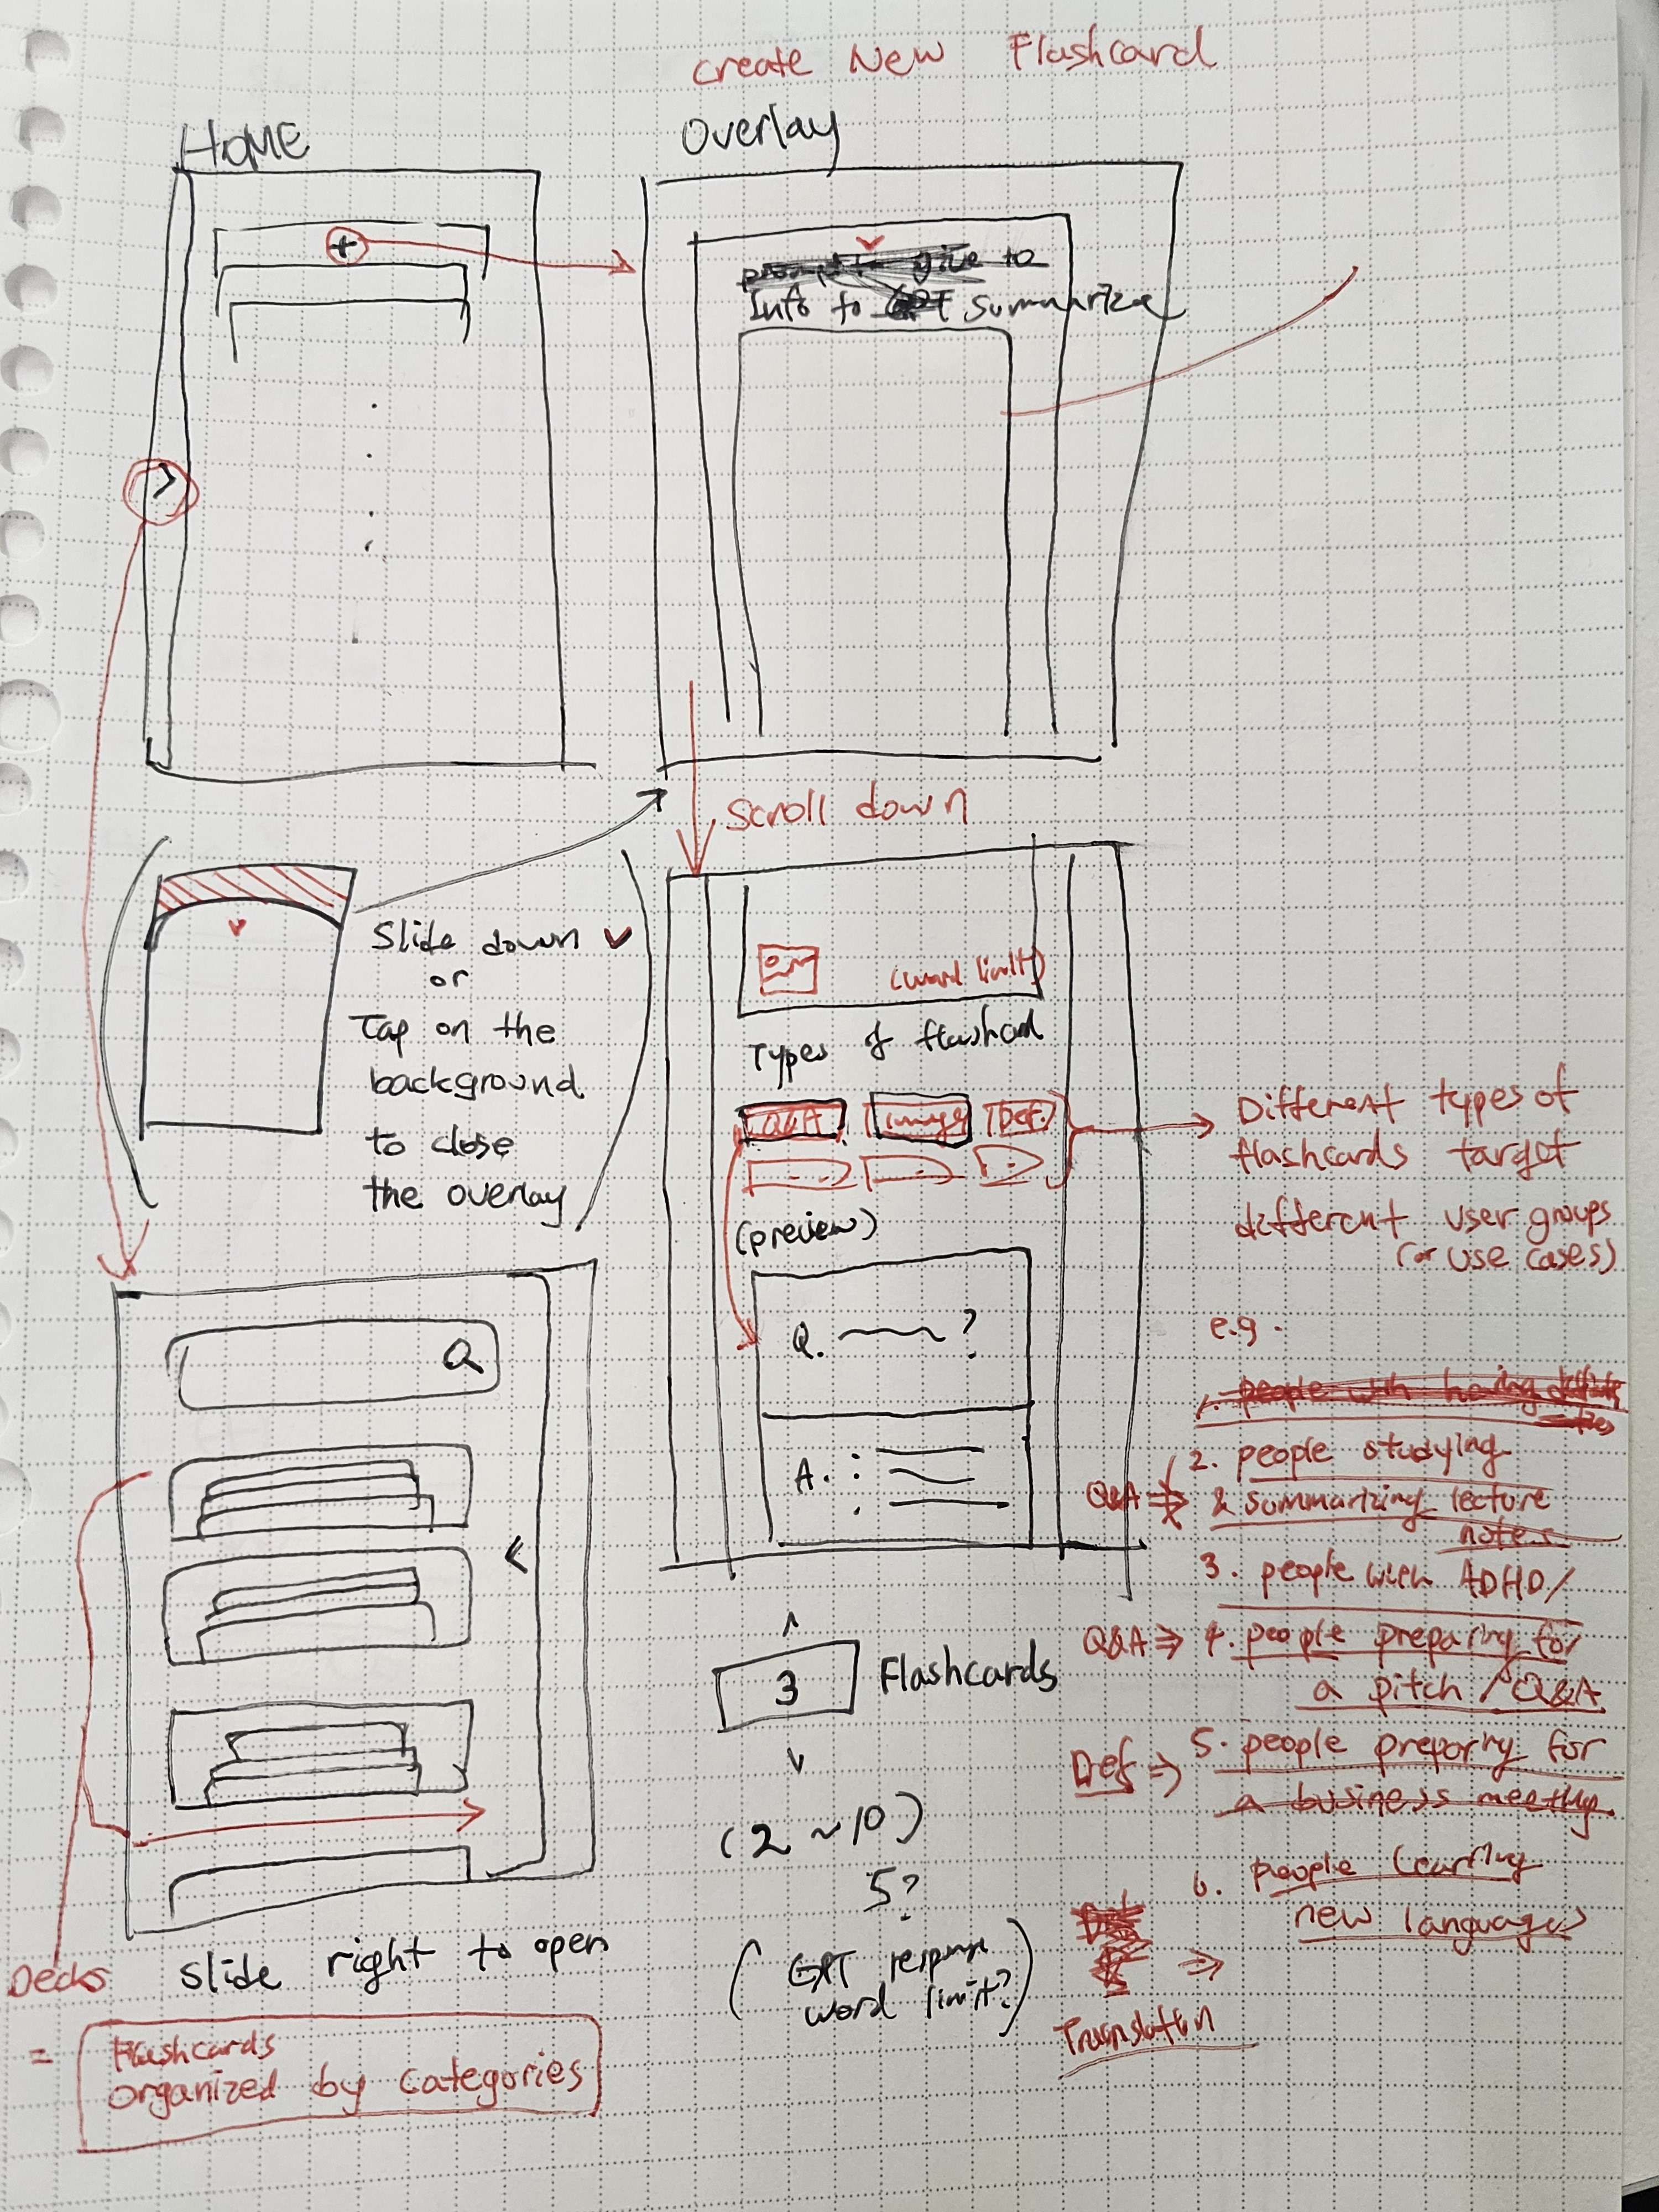 Create New Flashcard
HOME
Overlay
+
give to
Info to summarize
>
Scroll down
Slide down
or
Tap on the
background
to close
the overlay
(word limit)
Types of flashcard
Q&A image Def.
(preview)
Q. ?
A. :
Different types of
flashcards target
different user groups
(or use cases)
e.g.
1. people with having
Q&A ⇒ 2. people studying
& summarizing lecture
notes
3. people with ADHD/
Q&A ⇒ 4. people preparing for
a pitch / Q&A
Def ⇒ 5. people preparing for
a business meeting
6. people learning
new languages
⇒
Translation
Q
<
^
3 Flashcards
v
(2 ~ 10)
5?
(GPT response
word limit?)
slide right to open
Decks
= Flashcards
organized by categories